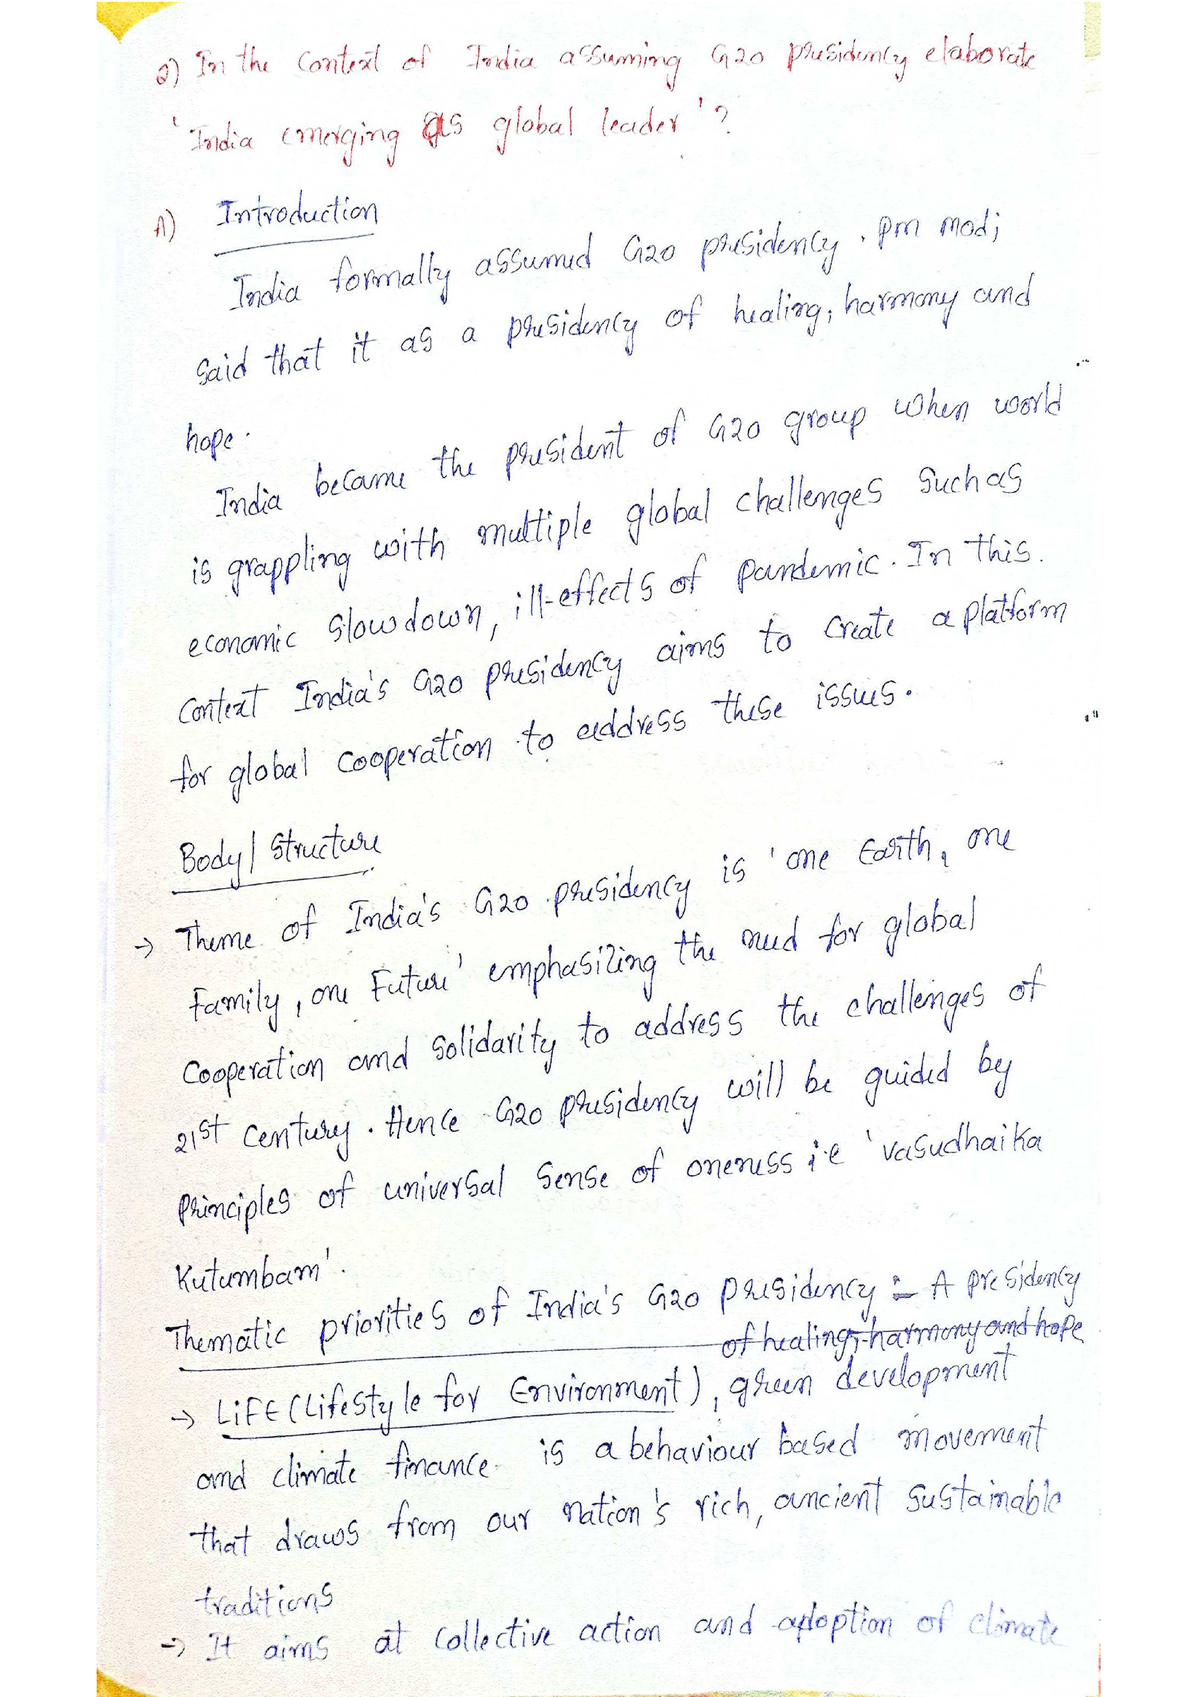 Q) In the context of India assuming G20 presidency elaborate
'India emerging as global leader'?
A) Introduction
India formally assumed G20 presidency. PM Modi
said that it as a presidency of healing, harmony and
hope.
India became the president of G20 group when world
is grappling with multiple global challenges such as
economic slowdown, ill-effects of pandemic. In this.
context India's G20 presidency aims to create a platform
for global cooperation to address these issues.
Body/Structure
→ Theme of India's G20 presidency is 'one Earth, one
Family, one Future' emphasizing the need for global
cooperation and solidarity to address the challenges of
21st century. Hence G20 presidency will be guided by
principles of universal sense of oneness i.e 'vasudhaika
Kutumbam'.
Thematic priorities of India's G20 presidency :- A presidency
of healing, harmony and hope
→ LiFE (Lifestyle for Environment), green development
and climate finance. is a behaviour based movement
that draws from our nation's rich, ancient sustainable
traditions
→ It aims at collective action and adoption of climate